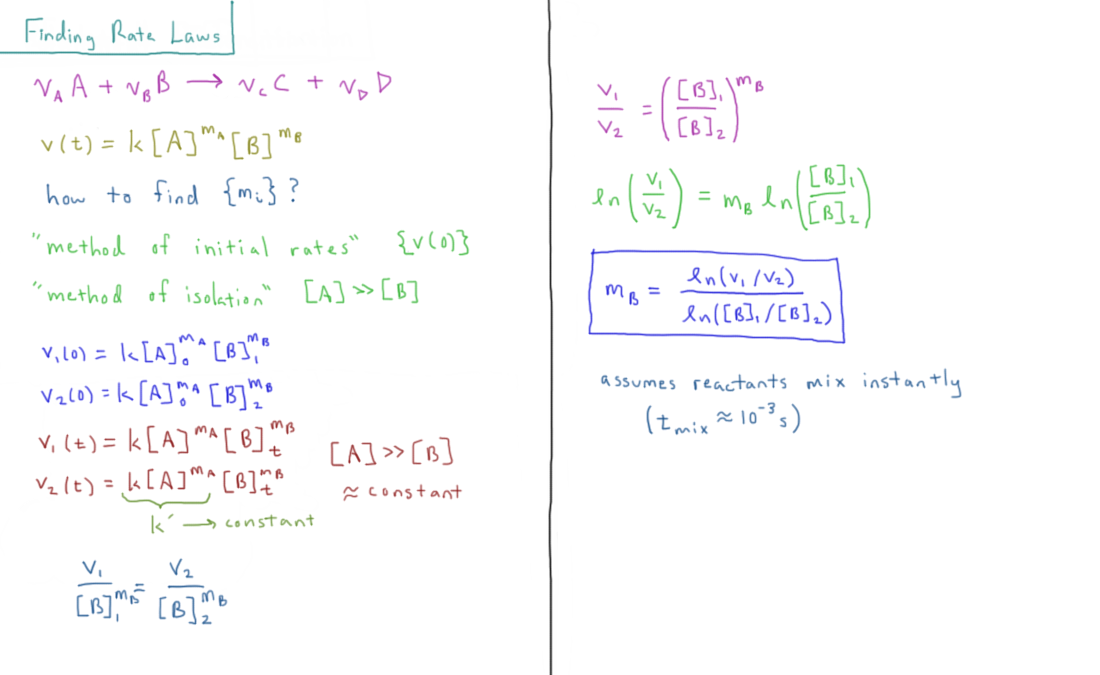 Finding Rate Laws
ν_A A + ν_B B → ν_C C + ν_D D
v(t) = k[A]^{m_A}[B]^{m_B}
how to find {m_i}?
"method of initial rates" {v(0)}
"method of isolation" [A] >> [B]
v_1(0) = k[A]_0^{m_A} [B]_1^{m_B}
v_2(0) = k[A]_0^{m_A} [B]_2^{m_B}
v_1(t) = k[A]^{m_A}[B]_t^{m_B}
v_2(t) = k[A]^{m_A}[B]_t^{m_B}
[A] >> [B]
≈ constant
k′ → constant
v_1/[B]_1^{m_B} = v_2/[B]_2^{m_B}
v_1/v_2 = ([B]_1/[B]_2)^{m_B}
ln(v_1/v_2) = m_B ln([B]_1/[B]_2)
m_B = ln(v_1/v_2)/ln([B]_1/[B]_2)
assumes reactants mix instantly
(t_mix ≈ 10^{-3} s)